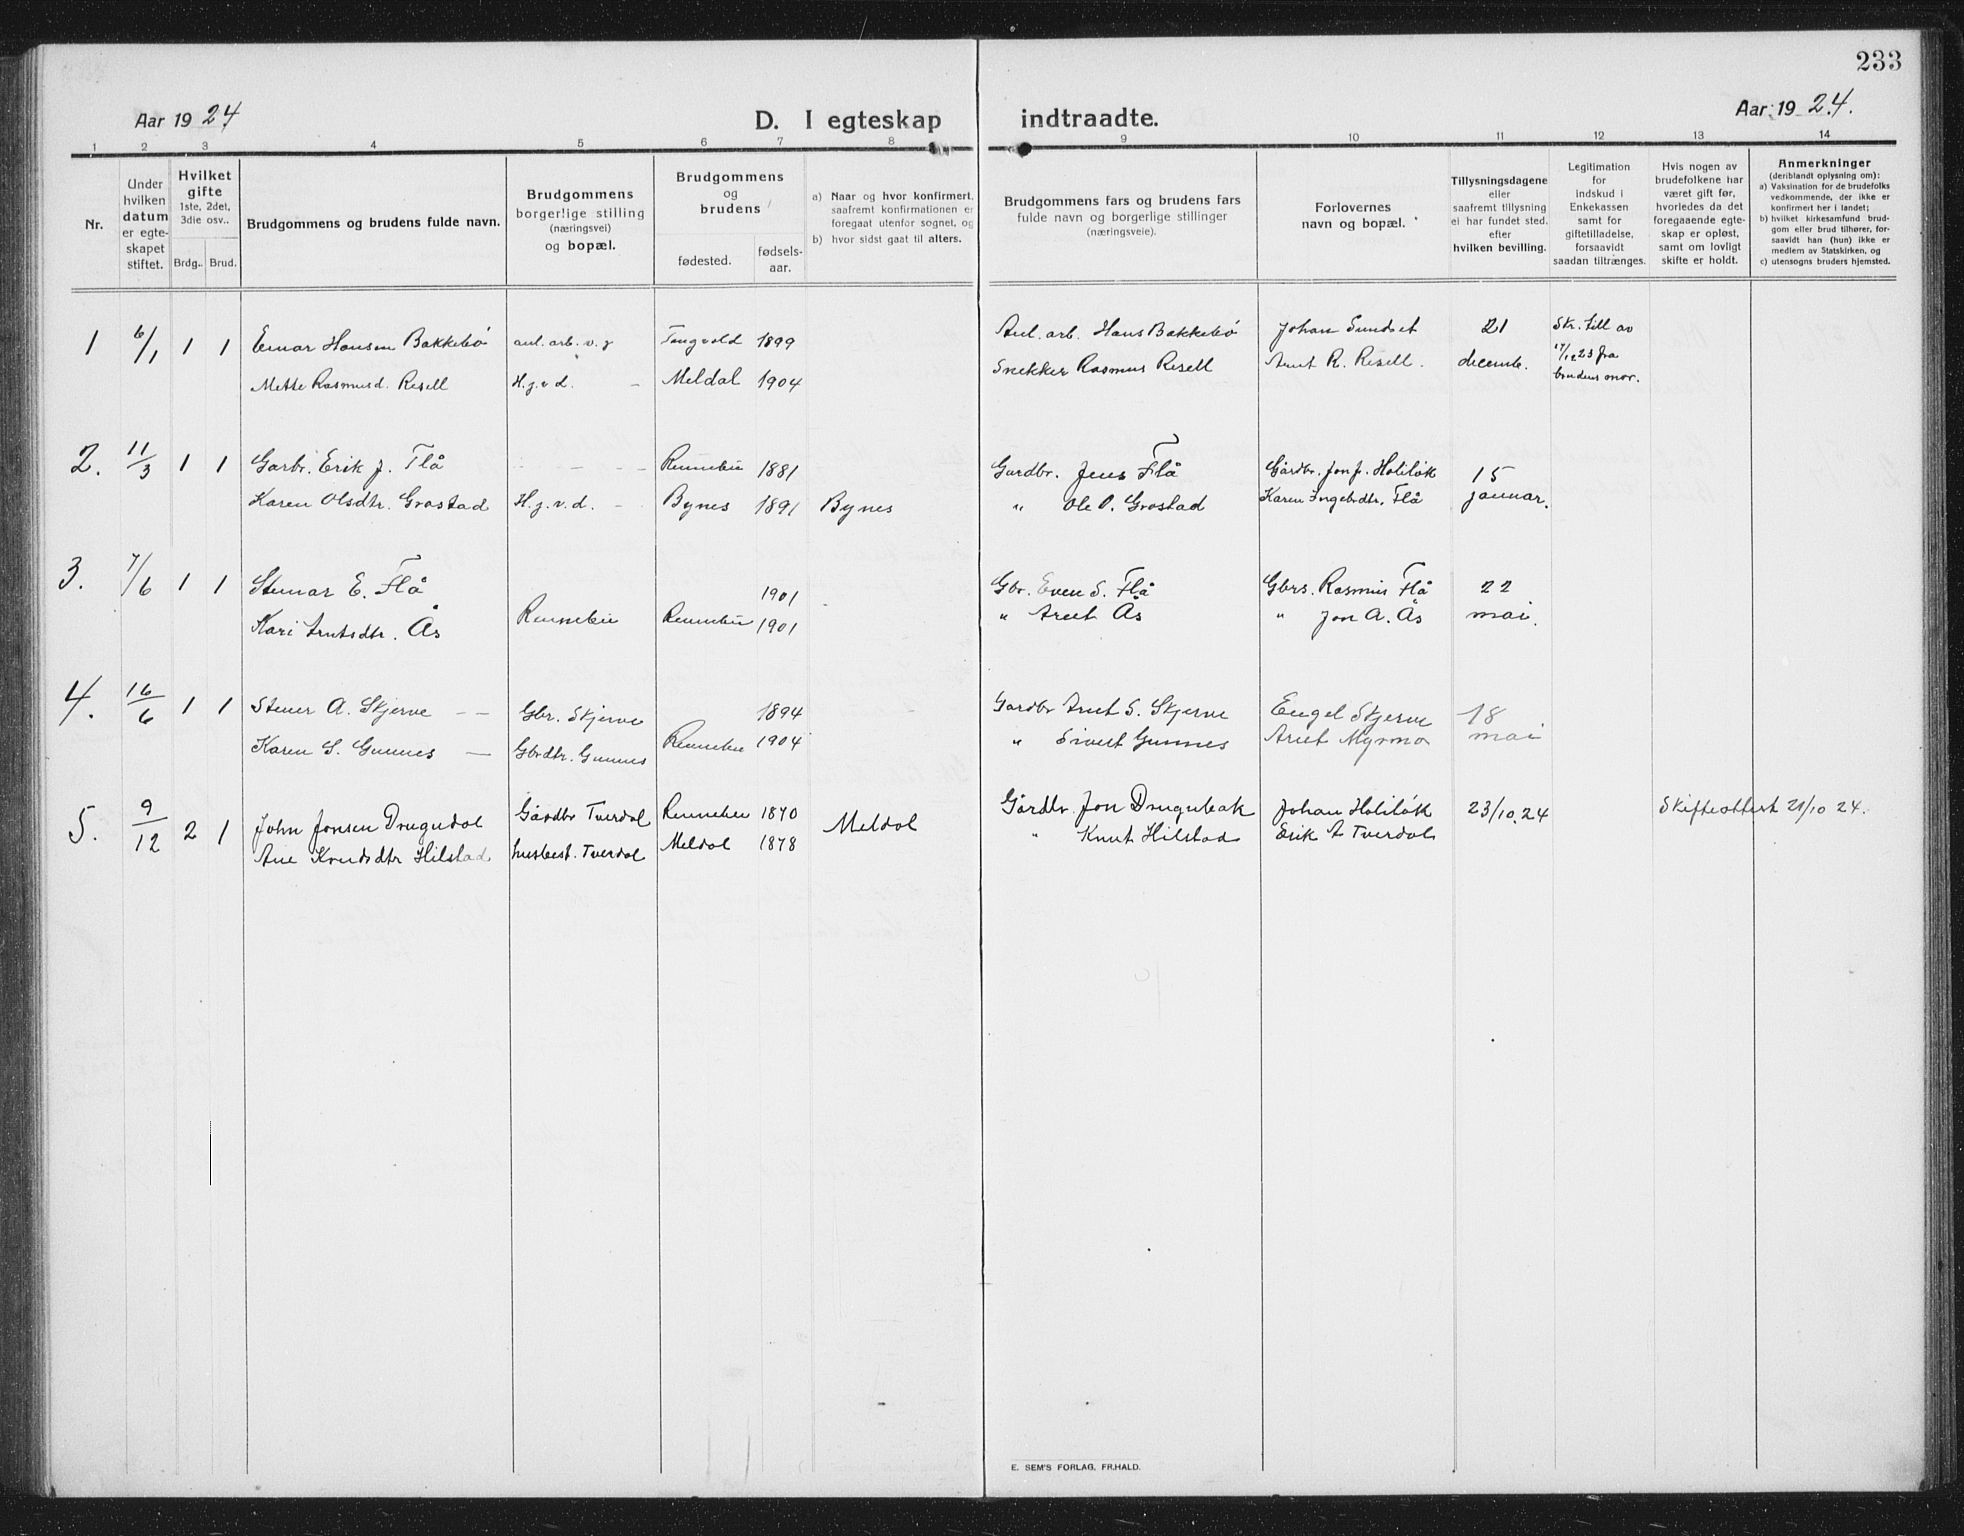 233
Aar 19 24
D. I egteskap indtraadte.
Aar 19 24.
1 2 3 4 5 6 7 8 9 10 11 12 13 14
Nr.
Under hvilken datum er egte-skapet stiftet.
Hvilket gifte
1ste, 2det, 3die osv..
Brdg.. Brud.
Brudgommens og brudens fulde navn.
Brudgommens borgerlige stilling (næringsvei) og bopæl.
Brudgommens og brudens
fødested.
fødsels-aar.
a) Naar og hvor konfirmert, saafremt konfirmationen er foregaat utenfor sognet, og
b) hvor sidst gaat til alters.
Brudgommens fars og brudens fars fulde navn og borgerlige stillinger (næringsveie).
Forlovernes navn og bopæl.
Tillysningsdagene eller saafremt tillysning ei har fundet sted. efter hvilken bevilling.
Legitimation for indskud i Enkekassen samt for giftetilladelse, forsaavidt saadan tiltrænges.
Hvis nogen av brudefolkene har været gift før, hvorledes da det foregaaende egte-skap er opløst, samt om lovligt skifte er holdt.
Anmerkninger
(deriblandt oplysning om):
a) Vaksination for de brudefolks vedkommende, der ikke er konfirmert her i landet;
b) hvilket kirkesamfund brud-gom eller brud tilhører, for-saavidt han (hun) ikke er medlem av Statskirken, og
c) utensogns bruders hjemsted.
1 6/1 1 1 Einar Hansen Bakkebø aul. arb. v. g Tingvold 1899 Aul. arb. Hans Bakkebø Johan Sundset 21 Skr. till av
Mette Rasmusd. Resell H.g.v d. - Meldal 1904 Snekker Rasmus Resell Arnt R. Resell. decemb. 17/12 23 fra
brudens mor.
2. 11/3 1 1 Garbr. Erik J. Flå - - - Rennebu 1881 Gardbr. Jens Flå Gårdbr. Jon J. Holiløk 15
Karen Olsdtr. Grostad H.g.v.d. - Bynes 1891 Bynes " Ole O. Grostad Karen Ingebrdtr. Flå januar.
3. 7/6 1 1 Steinar E. Flå 1901 Gbr. Even S. Flå Gbrs. Rasmus Flå 22
Kari Arntsdtr. Ås Rennebu Rennebu 1901 " Arnt Ås " Jon A. Ås mai.
4. 16/6 1 1 Stener A. Skjerve - - Gbr. Skjerve 1894 Gardbr Arnt S. Skjerve Engel Skjerve 18
Karen S. Gunnes - Gbrdtr. Gunnes Rennebu 1904 " Sivert Gunnes Arnt Myrmo mai
5. 9/12 2 1 John Jonsen Drugudal Gårdbr Tverdal Rennebu 1870 Meldal Gårdbr. Jon Drugubak Johan Holiløk 23/10.24 Skifteattest 21/10 24.
Ane Knudsdtr Hilstad husbest. Tverdal Meldal 1878 " Knut Hilstad Erik A Tverdal
E. SEM'S FORLAG, FR.HALD.